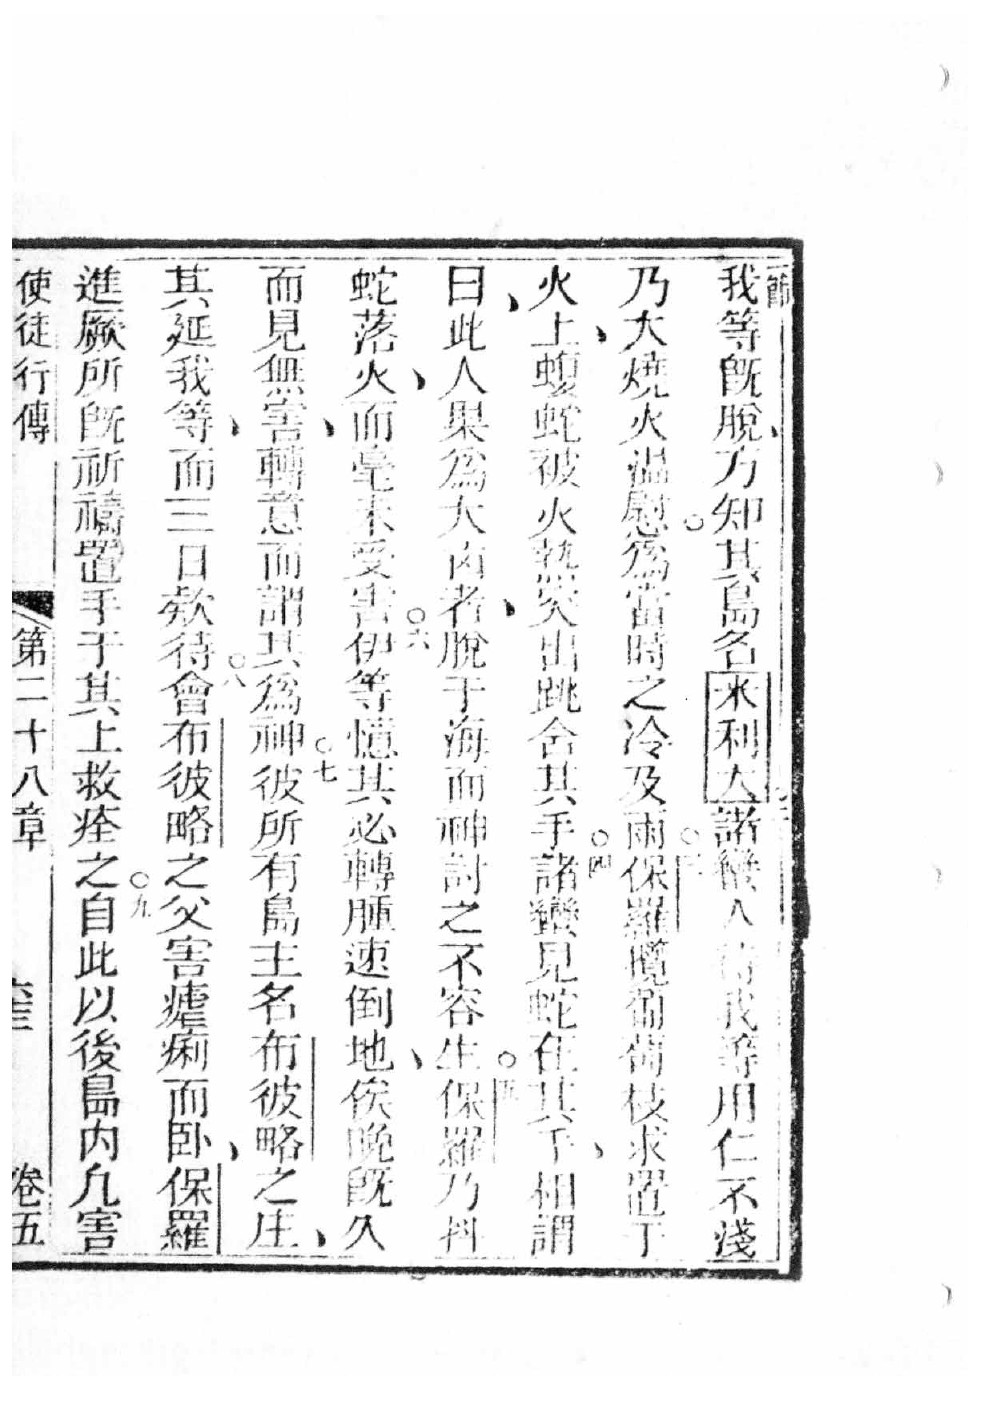 節
我等既脫方知其島名米利大諸蠻人待我等用仁不淺
乃大燒火溫慰爲當時之冷及雨○三保羅攬葡萄枝求置于
火上蝮蛇被火熱突出跳舍其手○四諸蠻見蛇在其手相謂
曰此人果爲大凶者脫于海而神討之不容生○五保羅乃抖
蛇落火而毫未受害○六伊等憶其必轉腫速倒地俟晚既久
而見無害轉意而謂其爲神○七彼所有島主名布彼略之庄
其延我等而三日欸待○八會布彼略之父害瘧痢而卧保羅
進厥所既祈禱置手于其上救痊之○九自此以後島內凡害
使徒行傳 第二十八章 卷五